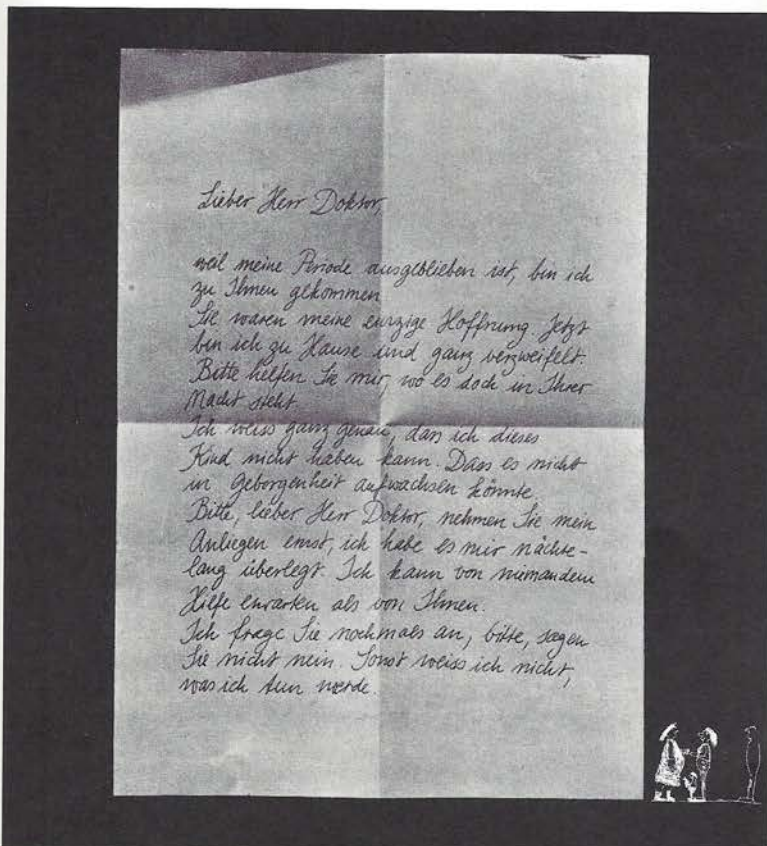 Lieber Herr Doktor,
weil meine Periode ausgeblieben ist, bin ich
zu Ihnen gekommen
Sie waren meine einzige Hoffnung. Jetzt
bin ich zu Hause und ganz verzweifelt.
Bitte helfen Sie mir, wo es doch in Ihrer
Macht steht.
Ich weiss ganz genau, dass ich dieses
Kind nicht haben kann. Dass es nicht
in Geborgenheit aufwachsen könnte.
Bitte, lieber Herr Doktor, nehmen Sie mein
Anliegen ernst, ich habe es mir nächte-
lang überlegt. Ich kann von niemandem
Hilfe erwarten als von Ihnen.
Ich frage Sie nochmals an, bitte, sagen
Sie nicht nein. Sonst weiss ich nicht,
was ich tun werde.